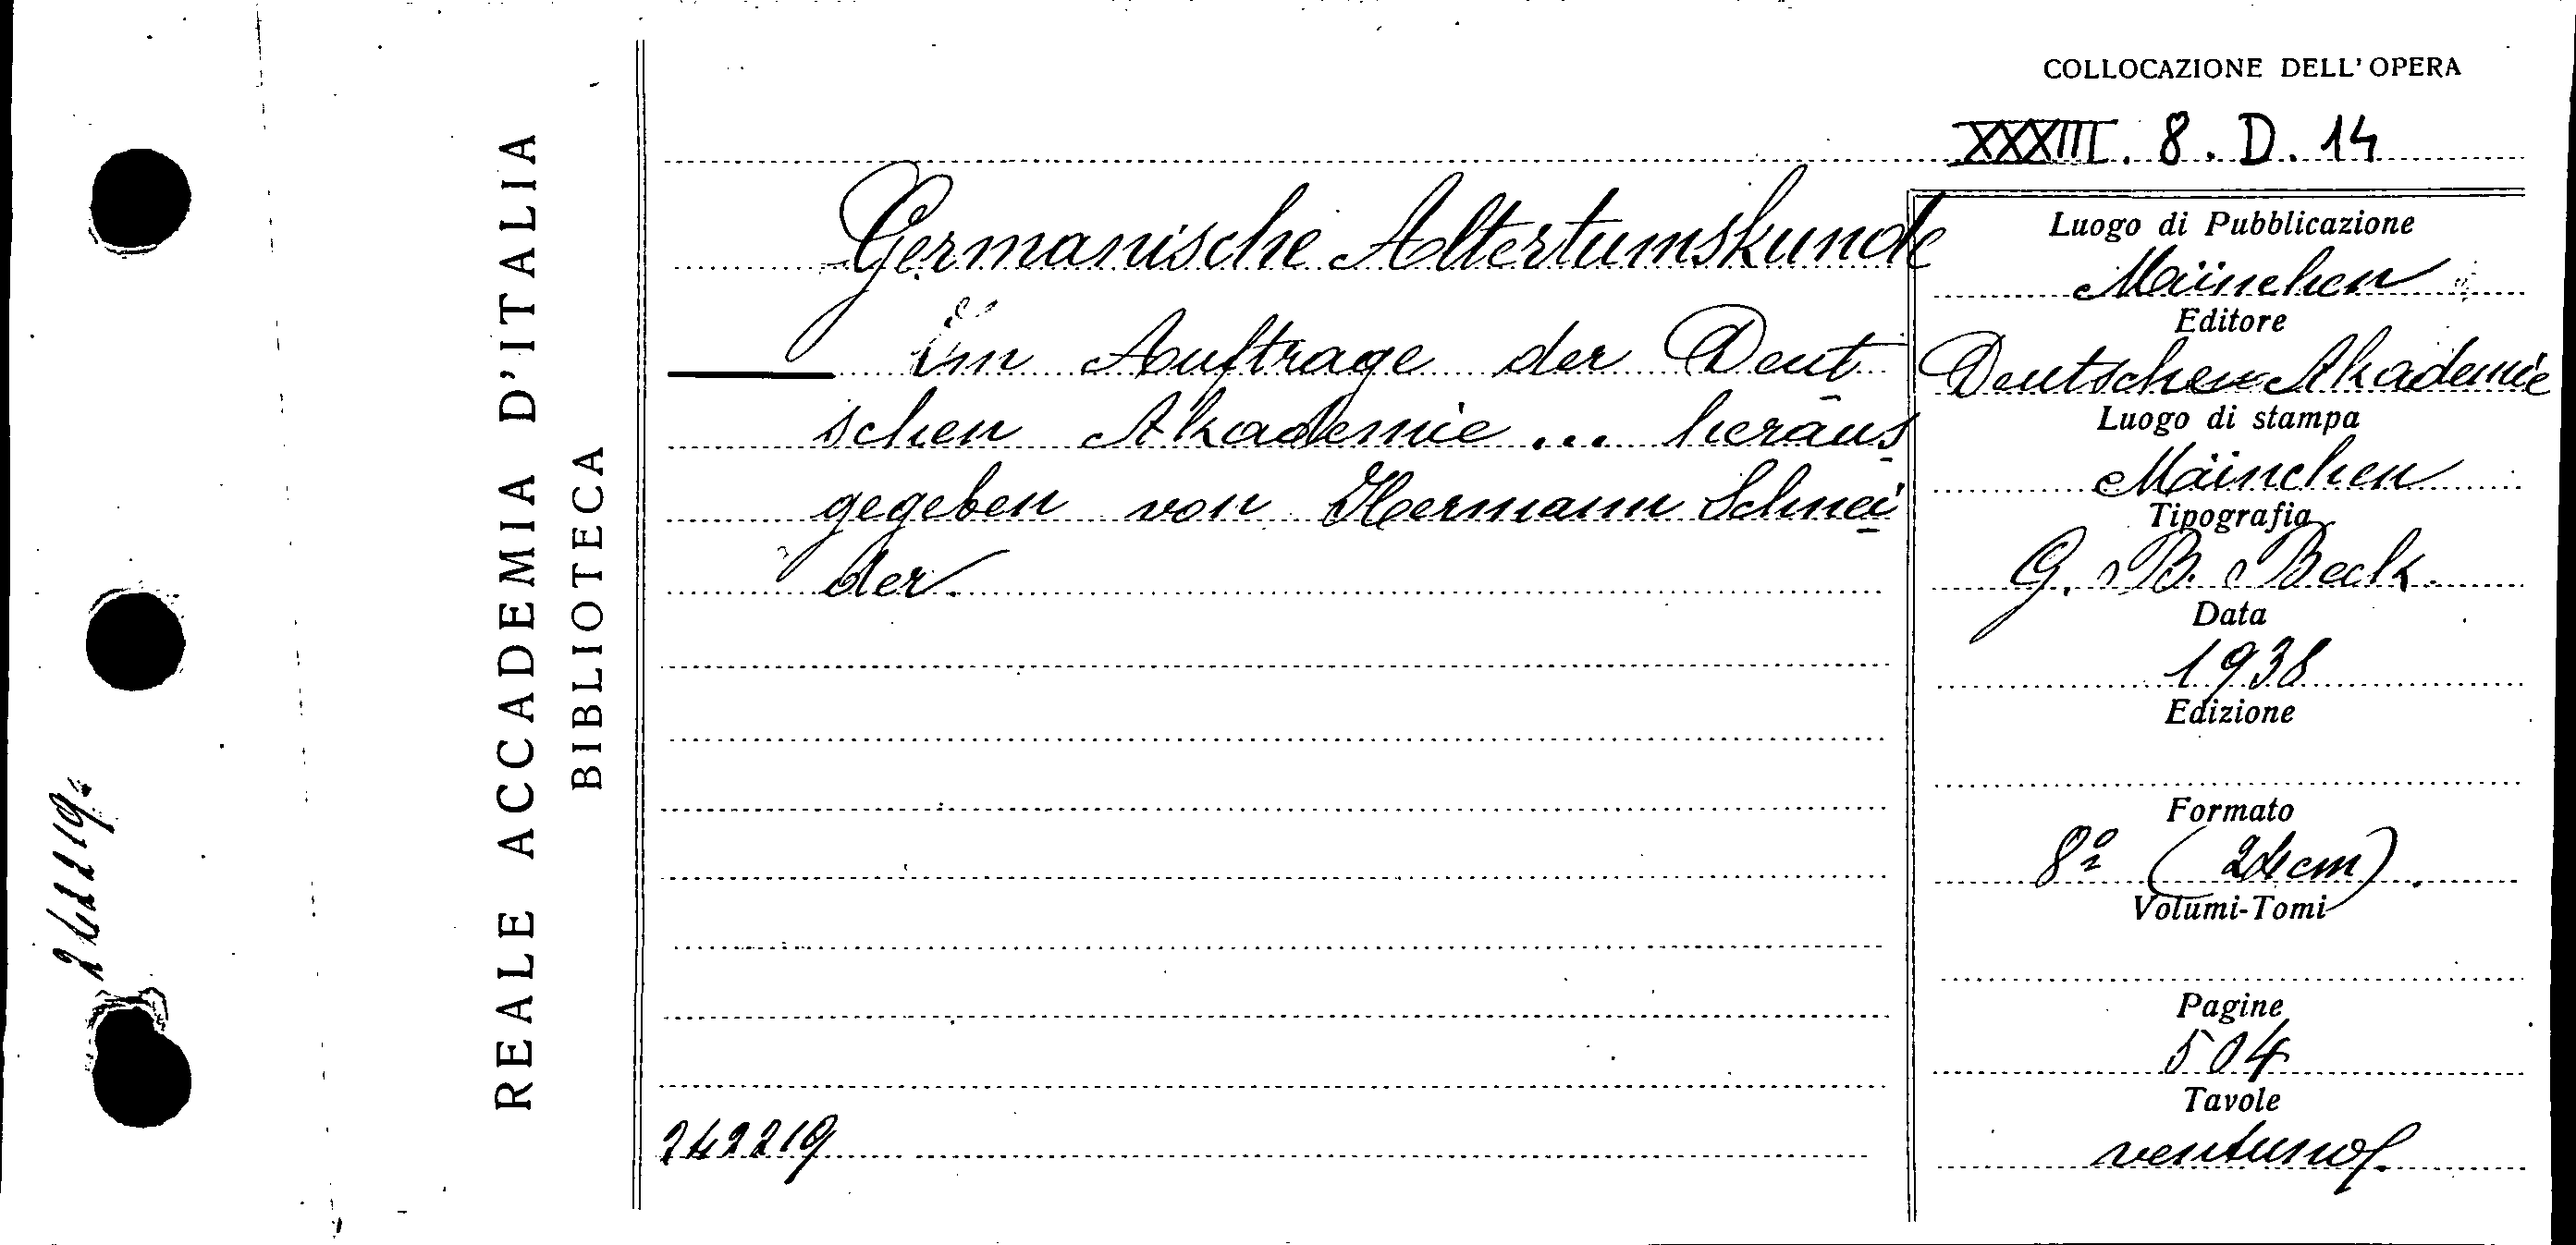 COLLOCAZIONE DELL'OPERA
XXXIII. 8. D. 14
REALE ACCADEMIA D'ITALIA
BIBLIOTECA
242219
Germanische Altertumskunde
Im Auftrage der Deut
schen Akademie ... heraus
gegeben von Hermann Schnei
der.
242219
Luogo di Pubblicazione
München
Editore
Deutschen Akademie
Luogo di stampa
München
Tipografia
G. B. Beck.
Data
1938
Edizione
Formato
8º (24cm).
Volumi-Tomi
Pagine
504
Tavole
ventuno